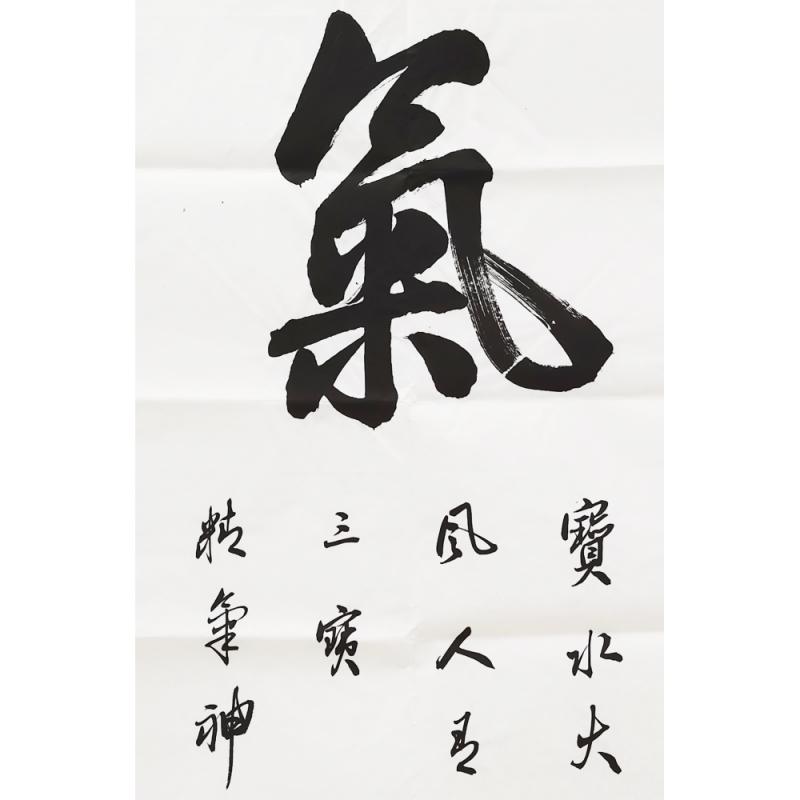 氣
寶水火
風人有
三寶
精氣神